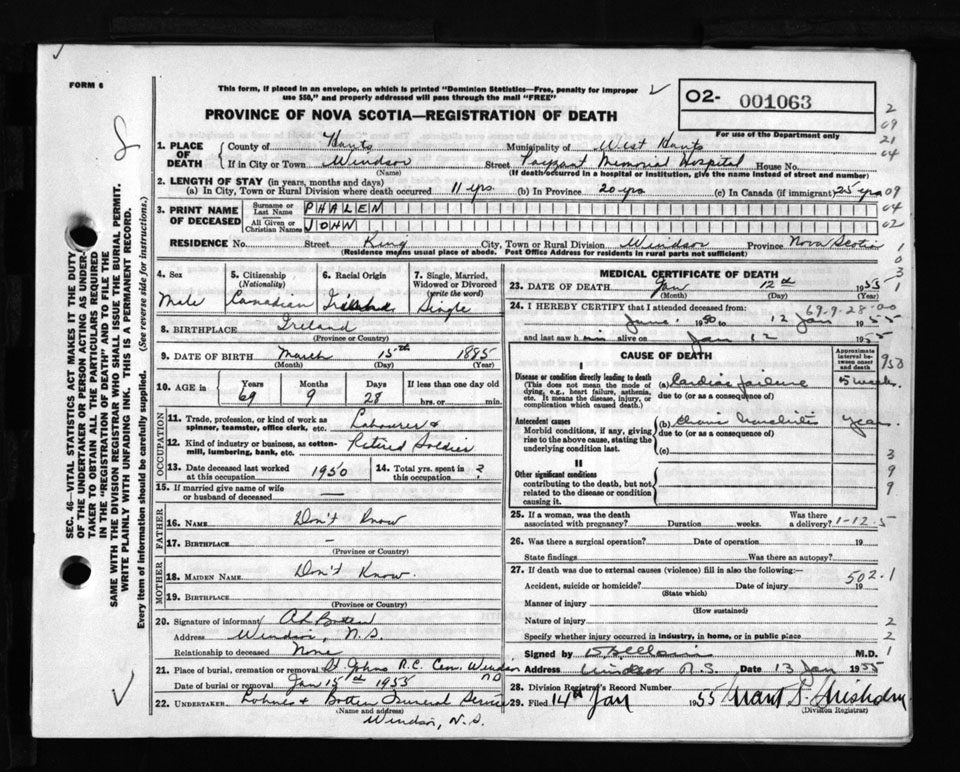 FORM 6
This form, if placed in an envelope, on which is printed "Dominion Statistics—Free, penalty for improper
use $50," and properly addressed will pass through the mail "FREE"
PROVINCE OF NOVA SCOTIA—REGISTRATION OF DEATH
O2- 001063
For use of the Department only
1. PLACE OF DEATH
County of Hants Municipality of West Hants
If in City or Town Windsor Street Payzant Memorial Hospital House No.
(Name) (If death occurred in a hospital or institution, give the name instead of street and number)
2. LENGTH OF STAY (in years, months and days)
(a) In City, Town or Rural Division where death occurred 11 yrs (b) In Province 20 yrs (c) In Canada (if immigrant) 25 yrs
3. PRINT NAME OF DECEASED
Surname or Last Name PHALEN
All Given or Christian Names JOHN
RESIDENCE No. Street King City, Town or Rural Division Windsor Province Nova Scotia
(Residence means usual place of abode. Post Office Address for residents in rural parts not sufficient)
4. Sex
Male
5. Citizenship
(Nationality)
Canadian
6. Racial Origin
7. Single, Married,
Widowed or Divorced
(write the word)
Single
8. BIRTHPLACE Ireland
(Province or Country)
9. DATE OF BIRTH March 15th 1885
(Month) (Day) (Year)
10. AGE in Years Months Days If less than one day old
69 9 28 hrs. or min.
OCCUPATION
11. Trade, profession, or kind of work as
spinner, teamster, office clerk, etc. Labourer &
12. Kind of industry or business, as cotton-
mill, lumbering, bank, etc. Retired Soldier
13. Date deceased last worked
at this occupation 1950
14. Total yrs. spent in
this occupation ?
15. If married give name of wife
or husband of deceased —
FATHER
16. NAME Don't Know
17. BIRTHPLACE –
(Province or Country)
MOTHER
18. MAIDEN NAME Don't Know.
19. BIRTHPLACE
(Province or Country)
20. Signature of informant
Address Windsor, N.S.
Relationship to deceased None
21. Place of burial, cremation or removal St Johns R.C. Cem. Windsor
Date of burial or removal Jan 15th 1955
22. UNDERTAKER Funeral Service
(Name and address)
Windsor, N.S.
MEDICAL CERTIFICATE OF DEATH
23. DATE OF DEATH Jan 12th 1955
(Month) (Day) (Year)
24. I HEREBY CERTIFY that I attended deceased from:
69-9-28-00
June 1950 to 12 Jan 1955
and last saw him alive on Jan 12 1955
CAUSE OF DEATH
Approximate
interval be-
tween onset
and death
I
Disease or condition directly leading to death
(This does not mean the mode of
dying, e.g., heart failure, asthenia,
etc. It means the disease, injury, or
complication which caused death.)
(a) Cardiac failure
due to (or as a consequence of)
5 weeks
Antecedent causes
Morbid conditions, if any, giving
rise to the above cause, stating the
underlying condition last.
(b)
due to (or as a consequence of)
(c)
II
Other significant conditions
contributing to the death, but not
related to the disease or condition
causing it.
25. If a woman, was the death
associated with pregnancy? Duration weeks. Was there
a delivery? 1-12.5
26. Was there a surgical operation? Date of operation 19
State findings Was there an autopsy?
27. If death was due to external causes (violence) fill in also the following:—
Accident, suicide or homicide? Date of injury 19
502.1
(State which)
Manner of injury
(How sustained)
Nature of injury
Specify whether injury occurred in industry, in home, or in public place
Signed by M.D.
Address Windsor N.S. Date 13 Jan 1955
28. Division Registrar's Record Number
29. Filed 14th Jan 1955
(Division Registrar)
SEC. 46—VITAL STATISTICS ACT MAKES IT THE DUTY
OF THE UNDERTAKER OR PERSON ACTING AS UNDER-
TAKER TO OBTAIN ALL THE PARTICULARS REQUIRED
IN THE "REGISTRATION OF DEATH" AND TO FILE THE
SAME WITH THE DIVISION REGISTRAR WHO SHALL ISSUE THE BURIAL PERMIT.
WRITE PLAINLY WITH UNFADING INK. THIS IS A PERMANENT RECORD.
Every item of information should be carefully supplied. (See reverse side for instructions.)
2
09
21
04
09
04
02
1
0
3
1
950
3
9
9
2
2
1